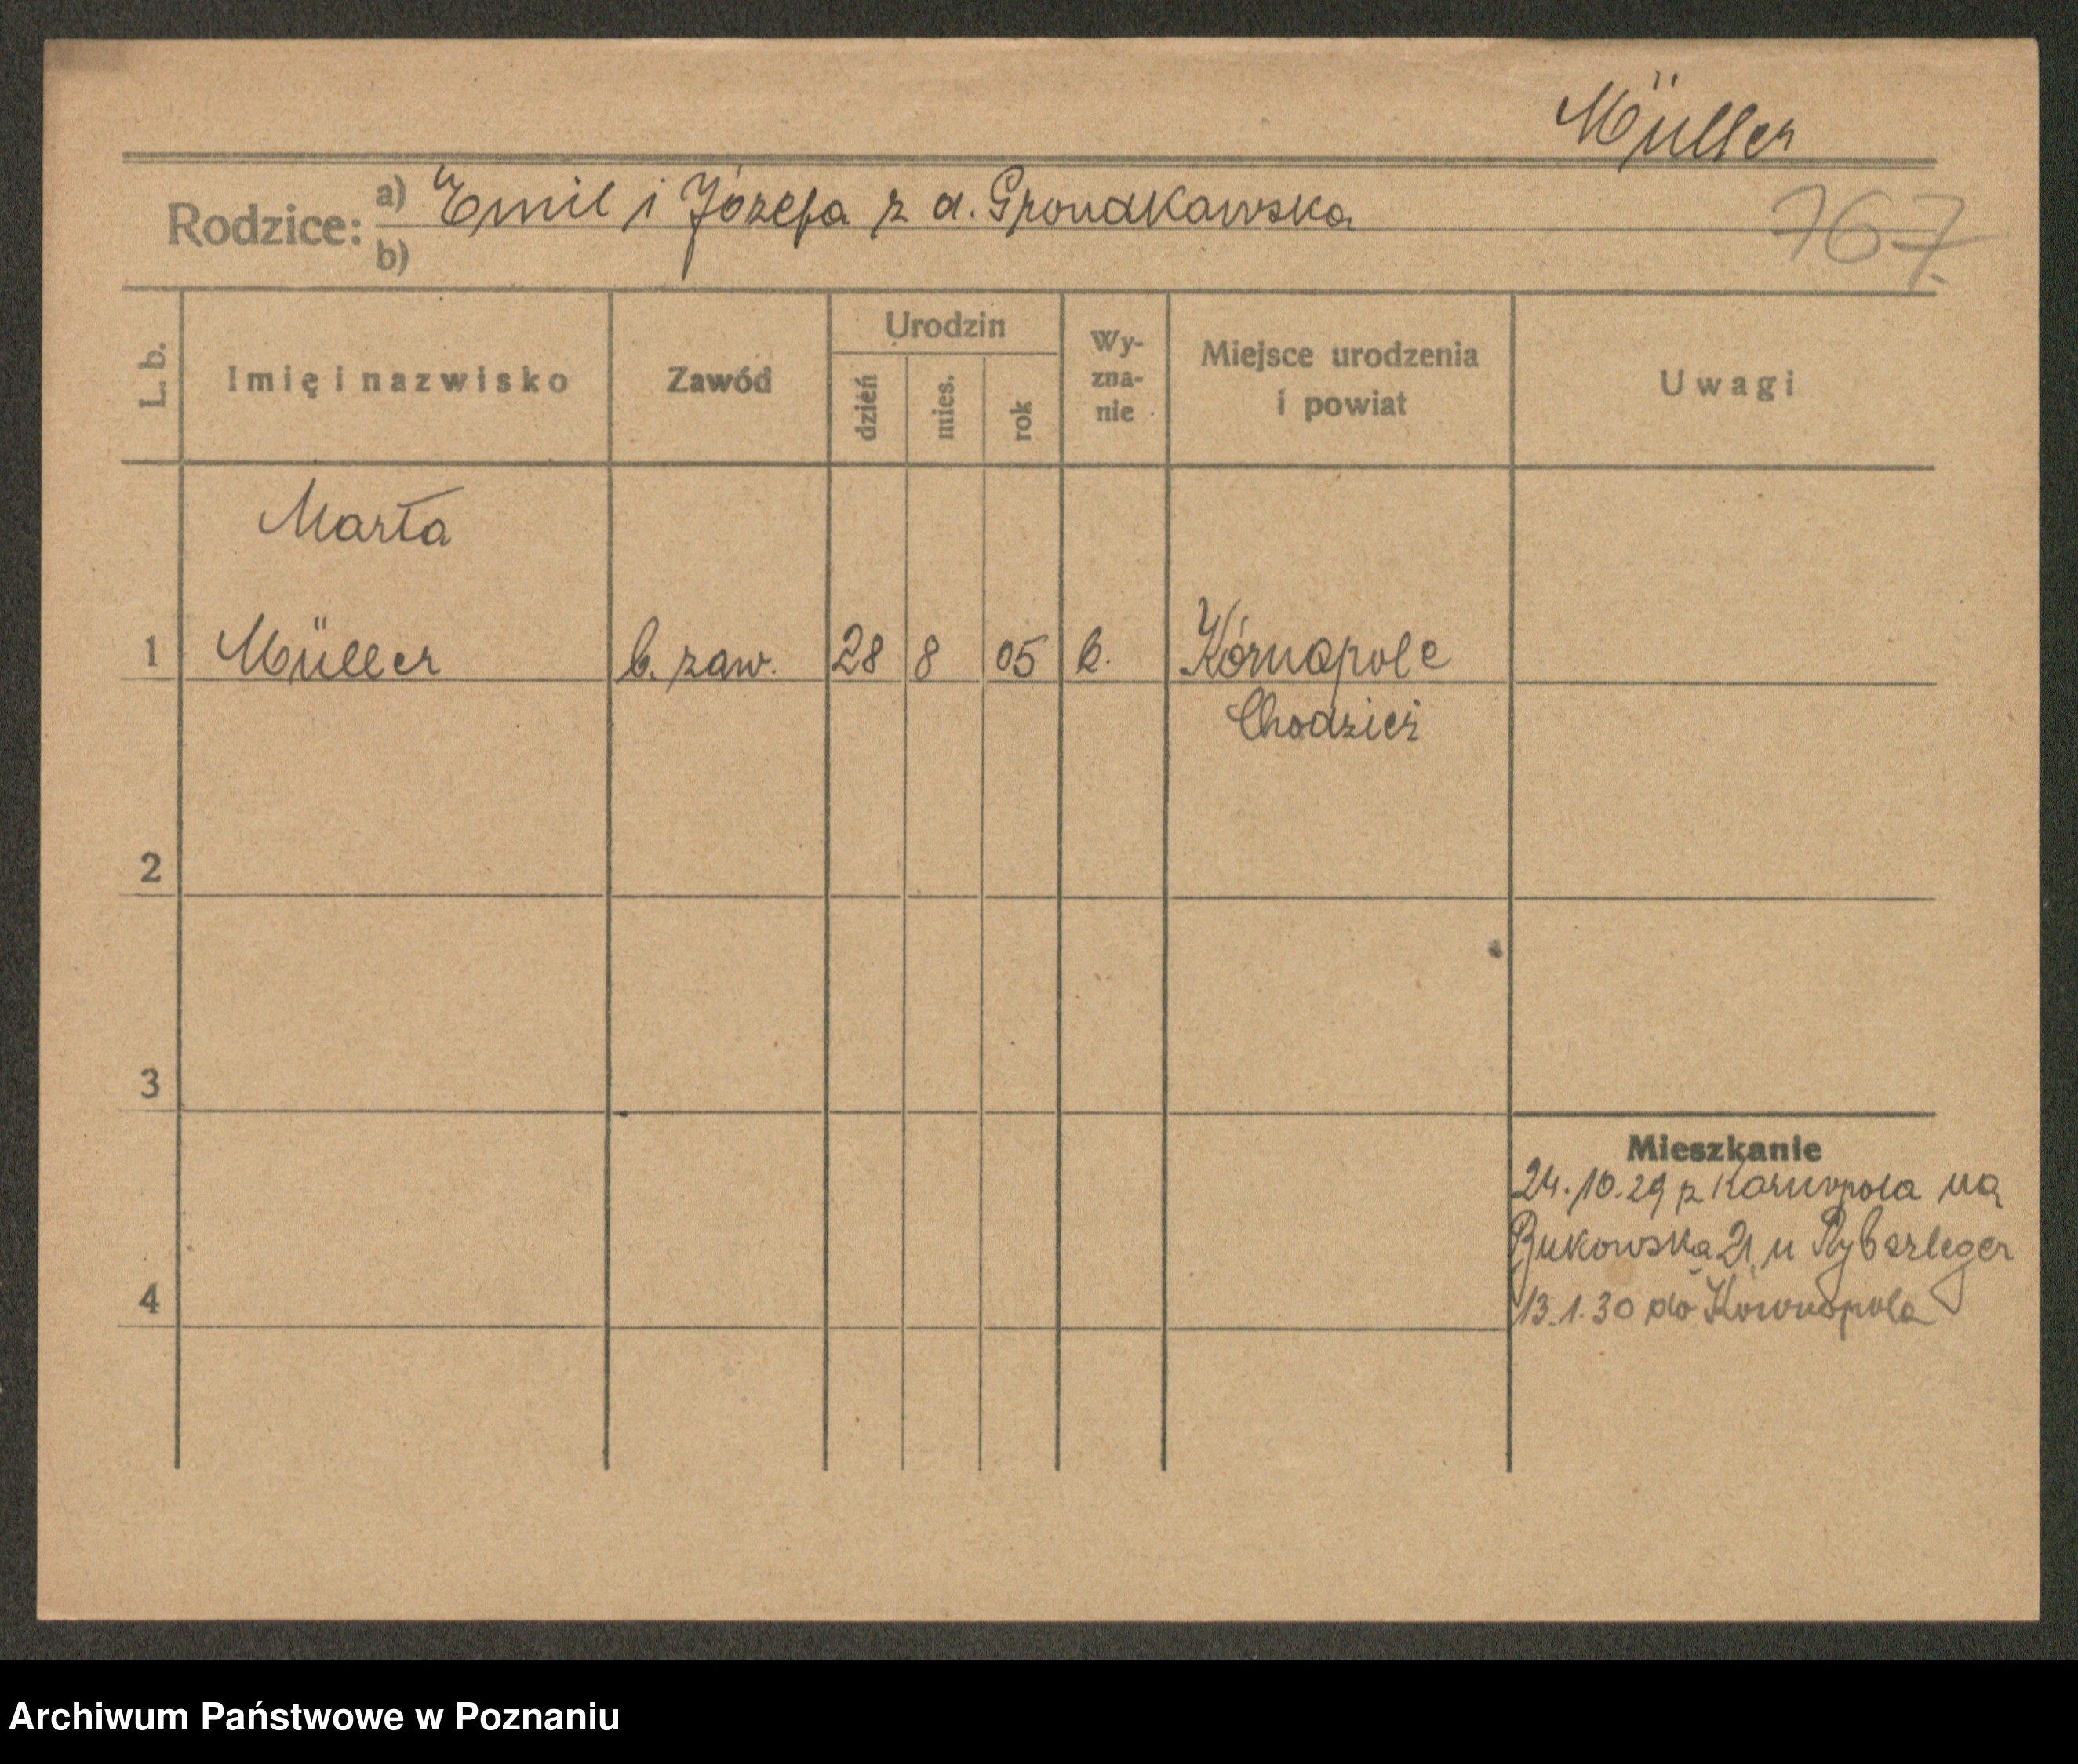 Müller
Rodzice: a) Emil i Józefa z d. Grondkowska
767.
b)
L. b. Imię i nazwisko Zawód Urodzin dzień mies. rok Wy-zna-nie Miejsce urodzenia i powiat Uwagi
Marta
1 Müller b. zaw. 28 8 05 k. Kórnopole
Chodzież
2
3
Mieszkanie
24.10.29 z Kórnopola na
Bukowska 21 u
4
13.1.30 do Kórnopola
Archiwum Państwowe w Poznaniu